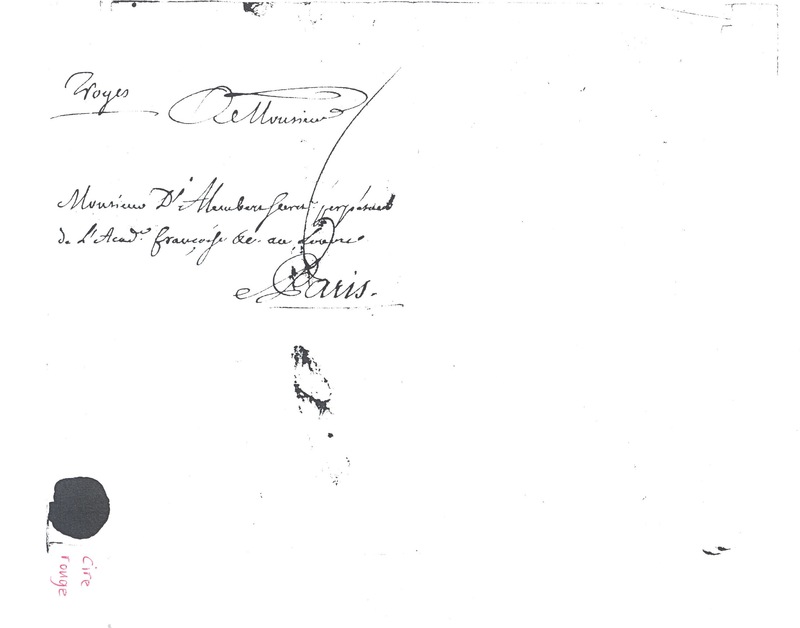 Troyes
A Monsieur
Monsieur D'Alembert Secret. perpétuel
de L'Acad.e françoise &c. au Louvre
A Paris.
Cire
rouge